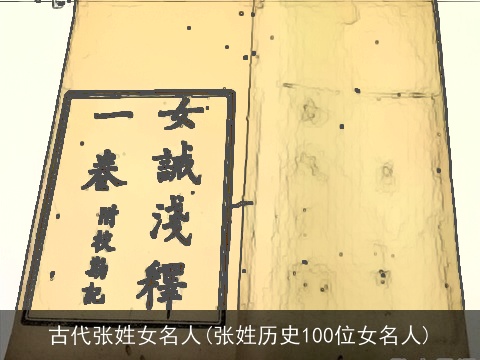 女誡淺釋
一卷
附校勘記
古代张姓女名人(张姓历史100位女名人)